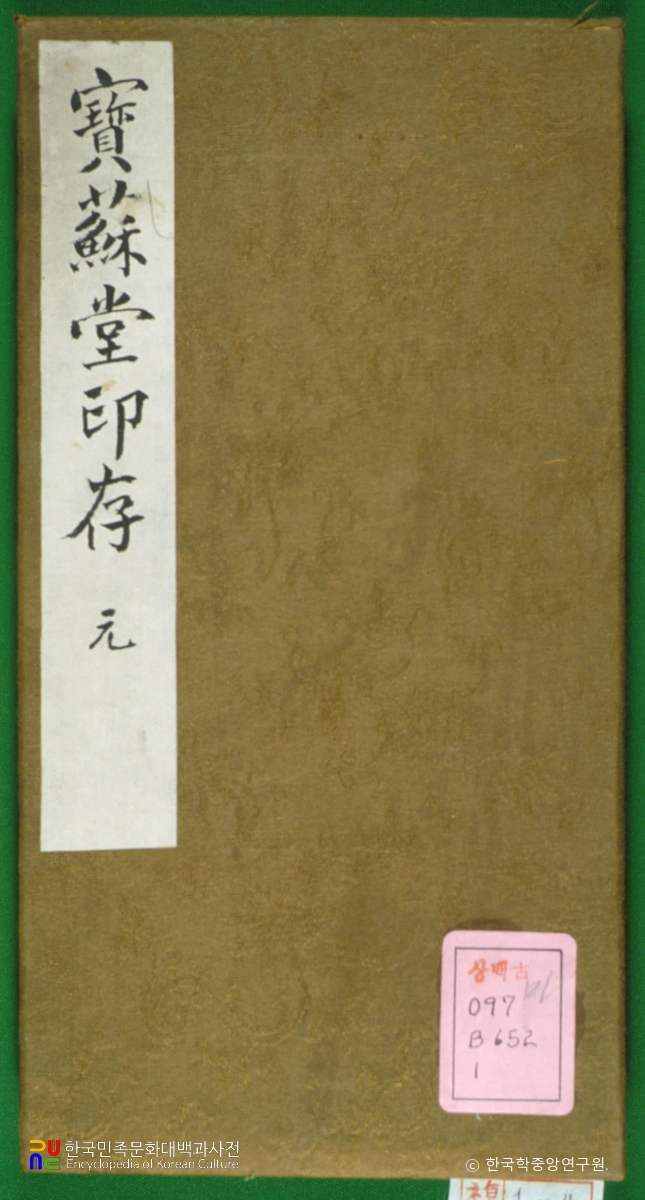 寶蘇堂印存 元
상백古
097
B652
1
한국민족문화대백과사전
Encyclopedia of Korean Culture
© 한국학중앙연구원.